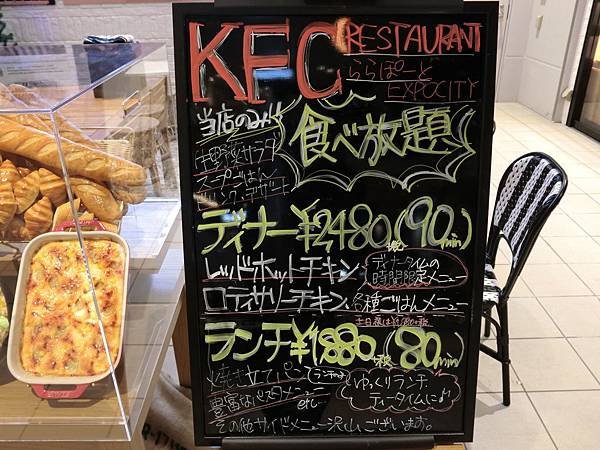 KFC RESTAURANT
ららぽーと
EXPOCITY
当店のみ!!
食べ放題
サラダ
スープごはん
ドリンク、デザート
ディナー¥2480(90min)
+税
レッドホットチキン
ロティサリーチキン、各種ごはんメニュー
ディナータイムの
時間限定メニュー
ランチ¥1880+税(80min)
焼き立てパン
ランチは
豊富なパスタメニュー
etc
ゆっくりランチ
ティータイムに♪
その他サイドメニュー沢山ございます。